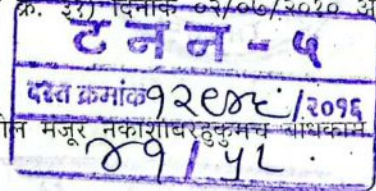 क्र. ३१) दिनांक ०२/०७/२०१० अ
ट न न - ५
दस्त क्रमांक १२९४६/२०१६
मंजूर नकाशांबरहुकुमच बांधकाम
४१/५८